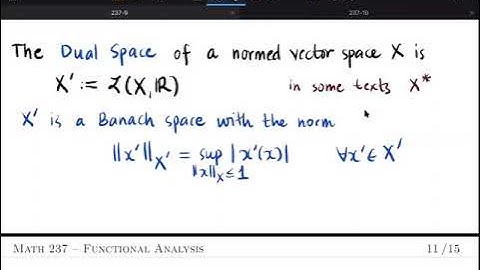 237-9
237-10
The Dual Space of a normed vector space X is
X' := ℒ(X, ℝ) in some texts X*
X' is a Banach space with the norm
‖x'‖_X' = sup_{‖x‖_X ≤ 1} |x'(x)| ∀x' ∈ X'
MATH 237 – FUNCTIONAL ANALYSIS 11/15